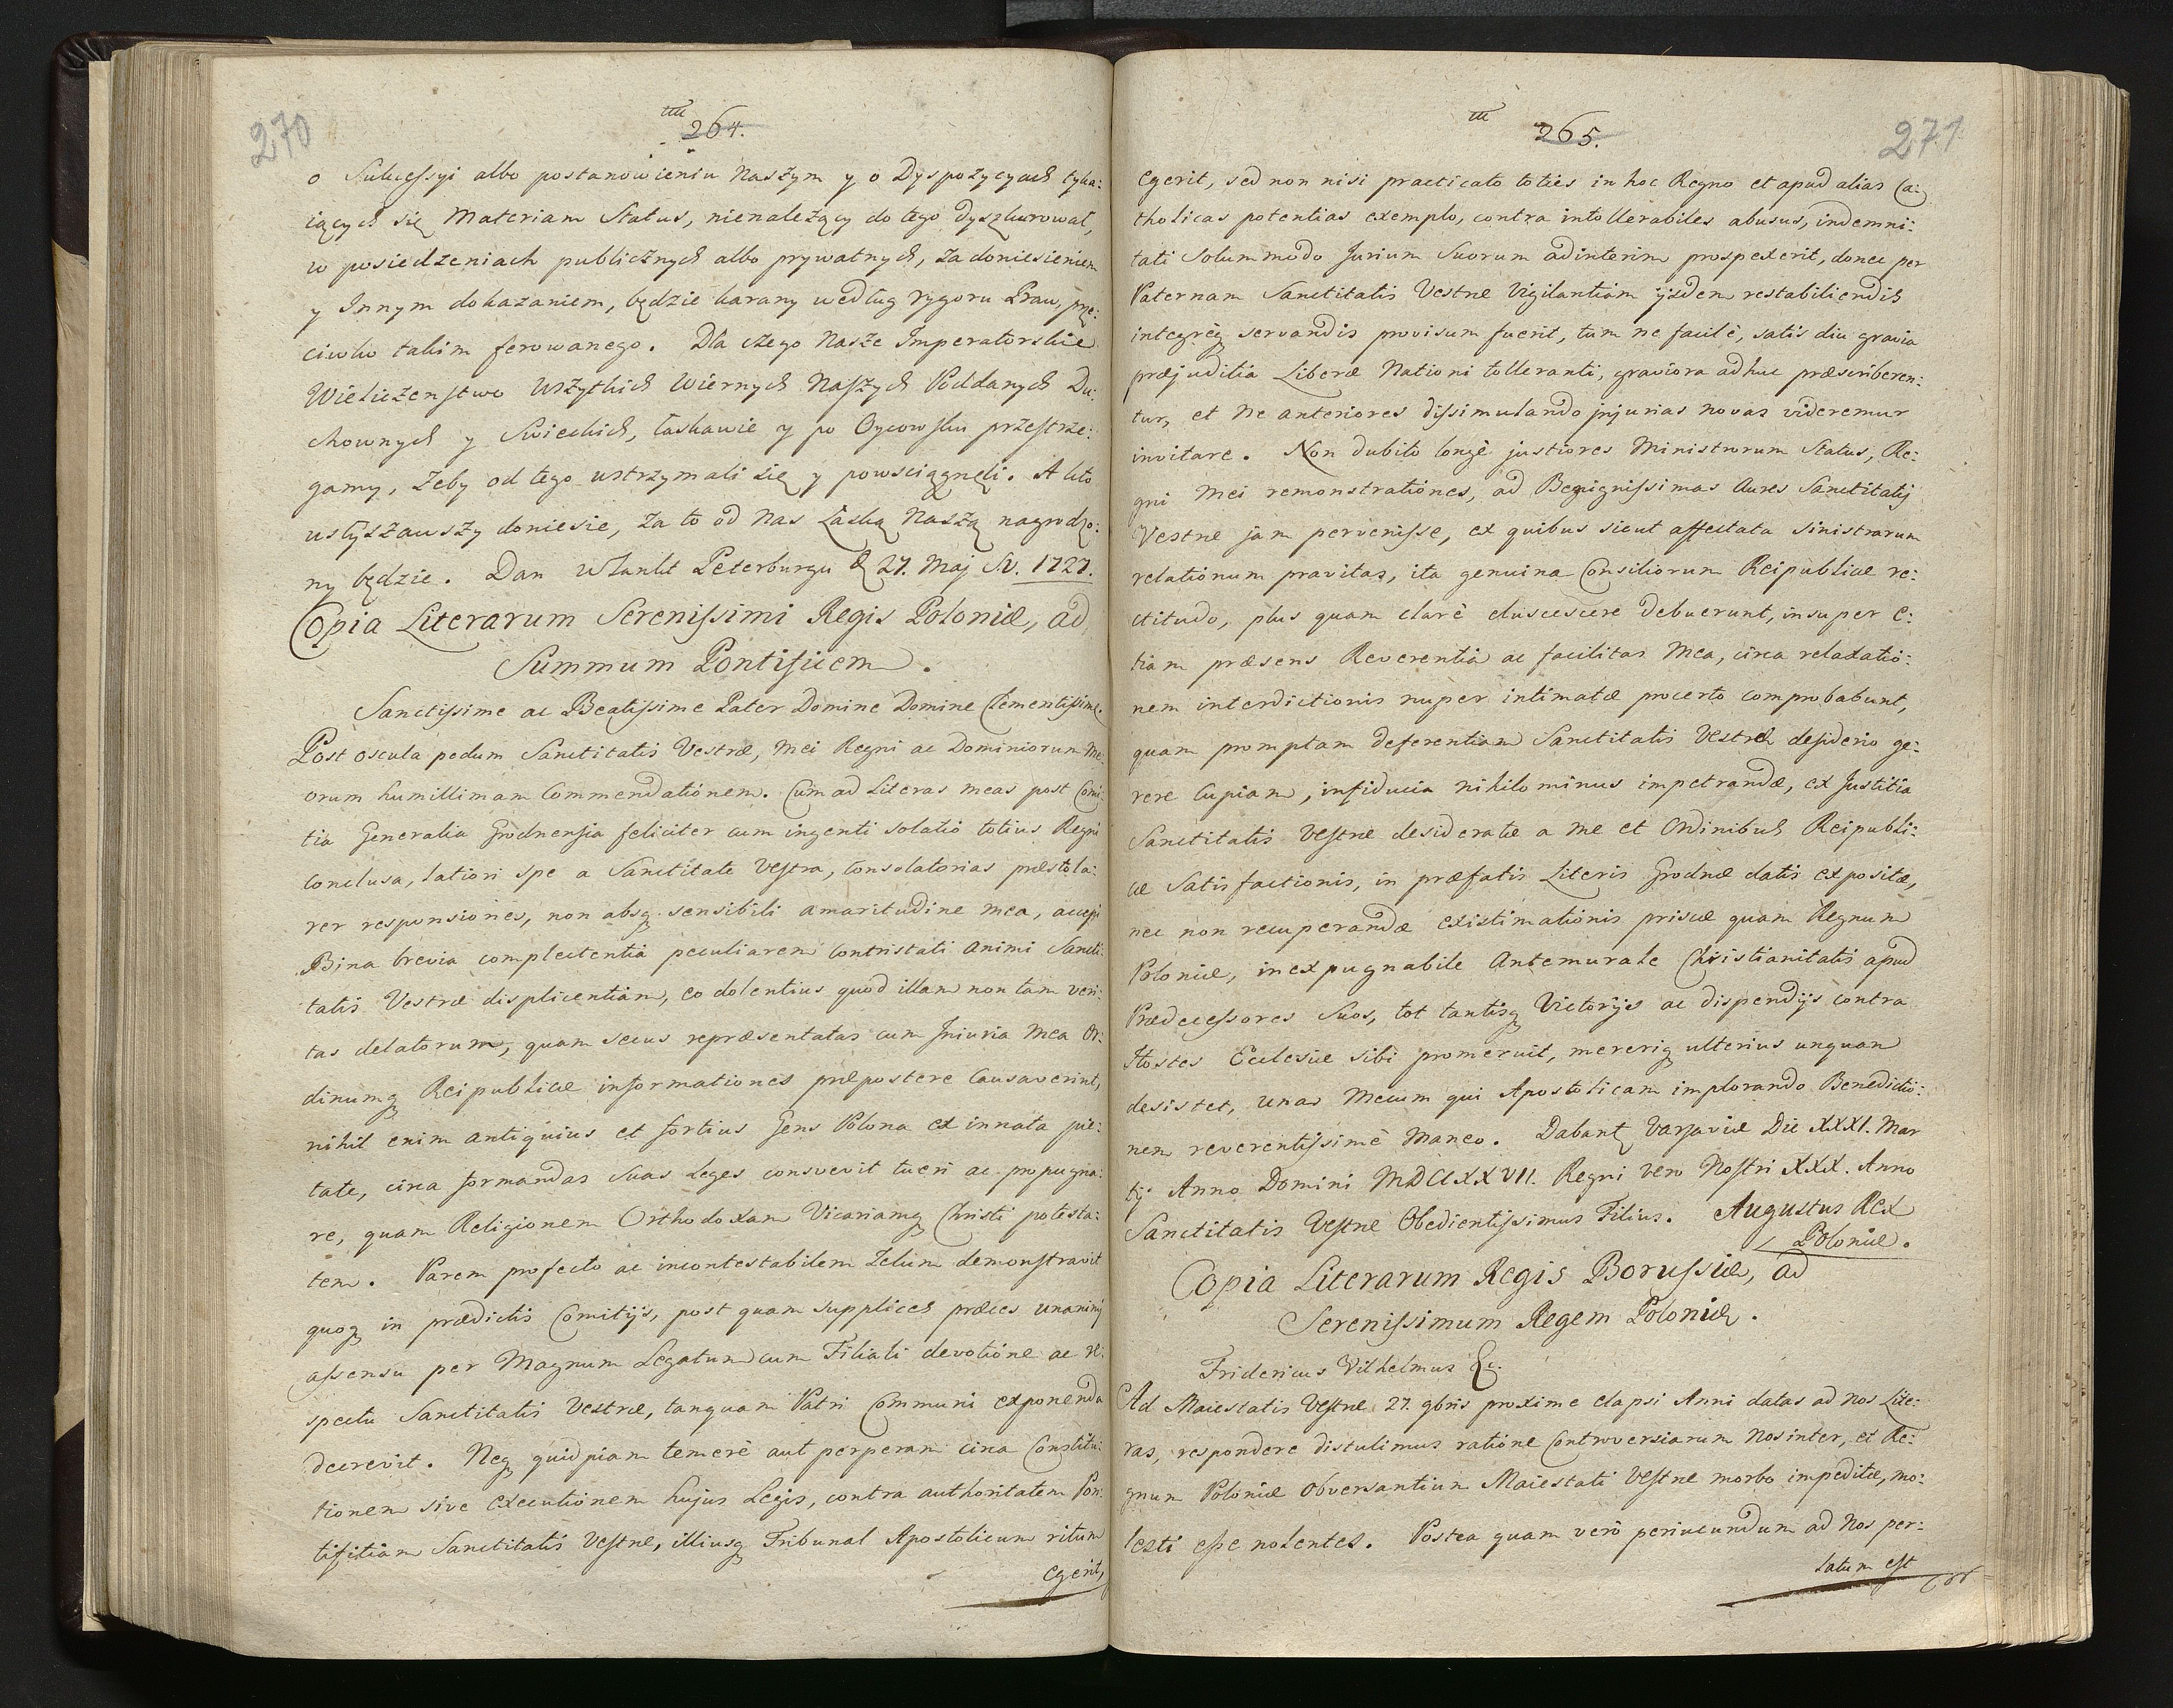 270
264.
o Sukcessyi albo postanowieniu Naszym y o Dyspozycyach tyka:
iących się Materiam Status, nienależący do tego dyszkurował,
w posiedzeniach publicznych albo prywatnych, za doniesieniem
y Innym dokazaniem, będzie karany według rygoru Praw, prze:
ciwko takim ferowanego. Dla czego Nasze Imperatorskie
Wieliczenstwo Wszytkich Wiernych Naszych Poddanych Du:
chownych y Swieckich, łaskawie y po Oycowsku przestrze:
gamy, żeby od tego wstrzymali się y powsciągnęli. A kto
usłyszawszy doniesie, za to od Nas Łaską Naszą nagrodzo:
ny będzie. Dan w Sankt Peterburgu d 27. Maj SV. 1727.
Copia Literarum Serenissimi Regis Poloniæ, ad
Summum Pontificem.
Sanctissime ac Beatissime Pater Domine Domine Clementissime.
Post oscula pedum Sanctitatis Vestræ, mei Regni ac Dominiorum me:
orum humillimam Commendationem. Cum ad Literas meas post Comi:
tia Generalia Grodnensia feliciter cum ingenti solatio totius Regni
conclusa, latiori spe a Sanctitate Vestra, consolatorias præstola:
rer responsiones, non absq. sensibili amaritudine mea, accepi
Bina brevia complectentia peculiarem contristati animi Sancti:
tatis Vestræ displicentiam, eo dolentius quod illam non tam veri:
tas delatorum, quam secus repræsentatas cum Iniuria mea Or:
dinumq Reipublicæ informationes præpostere causaverint,
nihil enim antiquius et fortius Gens Polona ex innata pie:
tate, circa formandas suas Leges consvevit tueri ac propugna:
re, quam Religionem Orthodoxam Vicariamq Christi potesta:
tem. Parem profecto ac incontestabilem Zelum demonstravit
quoq in prædictis Comitijs, post quam supplices preces unanimi
assensu per Magnum Legatum cum Filiali devotione ac re:
spectu Sanctitatis Vestræ, tanquam Patri Communi exponenda
decrevit. Neq quidpiam temerè aut perperam circa Constitu:
tionem sive executionem hujus Legis, contra authoritatem Pon:
tificiam Sanctitatis Vestræ, illiusq Tribunal Apostolicum ritum
egerit,
265.
271
egerit, sed non nisi practicato toties in hoc Regno et apud alias Ca:
tholicas potentias exemplo, contra intollerabiles abusus, indemni:
tati Solummodo Jurium Suorum adinterim prospexerit, donec per
Paternam Sanctitatis Vestræ Vigilantiam ijsdem restabiliendis
integreq servandis provisum fuerit, tum ne facilè, satis diu gravia
præjuditia Liberæ Nationi tolleranti, graviora adhuc præscriberen:
tur, et ne anteriores dissimulando injurias novas videremur
invitare. Non dubito longè justiores Ministrorum Status, Re:
gni Mei remonstrationes, ad Benignissimas Aures Sanctitatis
Vestræ jam pervenisse, ex quibus sicut affectata sinistrarum
relationum pravitas, ita genuina Consiliorum Reipublicæ re:
ctitudo, plus quam clarè elucescere debuerunt, insuper e:
tiam præsens Reverentia ac facilitas Mea, circa relaxatio:
nem interdictionis nuper intimatæ procerto comprobabunt,
quam promptam deferentiam Sanctitatis Vestræ desiderio ge:
rere cupiam, infiducia nihilominus impetrandæ, ex Justitia
Sanctitatis Vestræ desideratæ a me et Ordinibus Reipubli:
cæ Satisfactionis, in præfatis Literis Grodnæ datis expositæ,
nec non recuperandæ existimationis priscæ quam Regnum
Poloniæ, inexpugnabile Antemurale Christianitatis apud
Prædecessores Suos, tot tantisq Victorijs ac dispendijs contra
Hostes Ecclesiæ sibi promeruit, mereriq ulterius unquam
desistet, unas Mecum qui Apostolicam implorando Benedictio:
nem reverentissimè Maneo. Dabant Varsaviæ Die XXXI. Mar
tij Anno Domini MDCCXXVII. Regni vero Nostri XXX. Anno
Sanctitatis Vestræ Obedientissimus Filius. Augustus Rex
Poloniæ.
Copia Literarum Regis Borussiæ, ad
Serenissimum Regem Poloniæ.
Fridericus Vilhelmus &c.
Ad Maiestatis Vestræ 27. gbris proxime elapsi Anni datas ad nos Lite:
ras, respondere distulimus ratione Controversiarum Nosinter, et Re:
gnum Poloniæ obversantium Maiestati Vestræ morbo impeditæ, mo:
lesti esse nolentes. Postea quam verò periucundum ad Nos per:
latum est